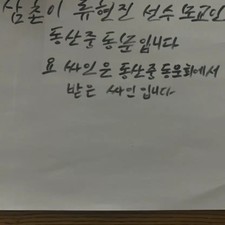 삼촌이 류현진 선수 모교인
동산중 동문입니다
요 싸인은 동산중 동문회에서
받은 싸인입니다